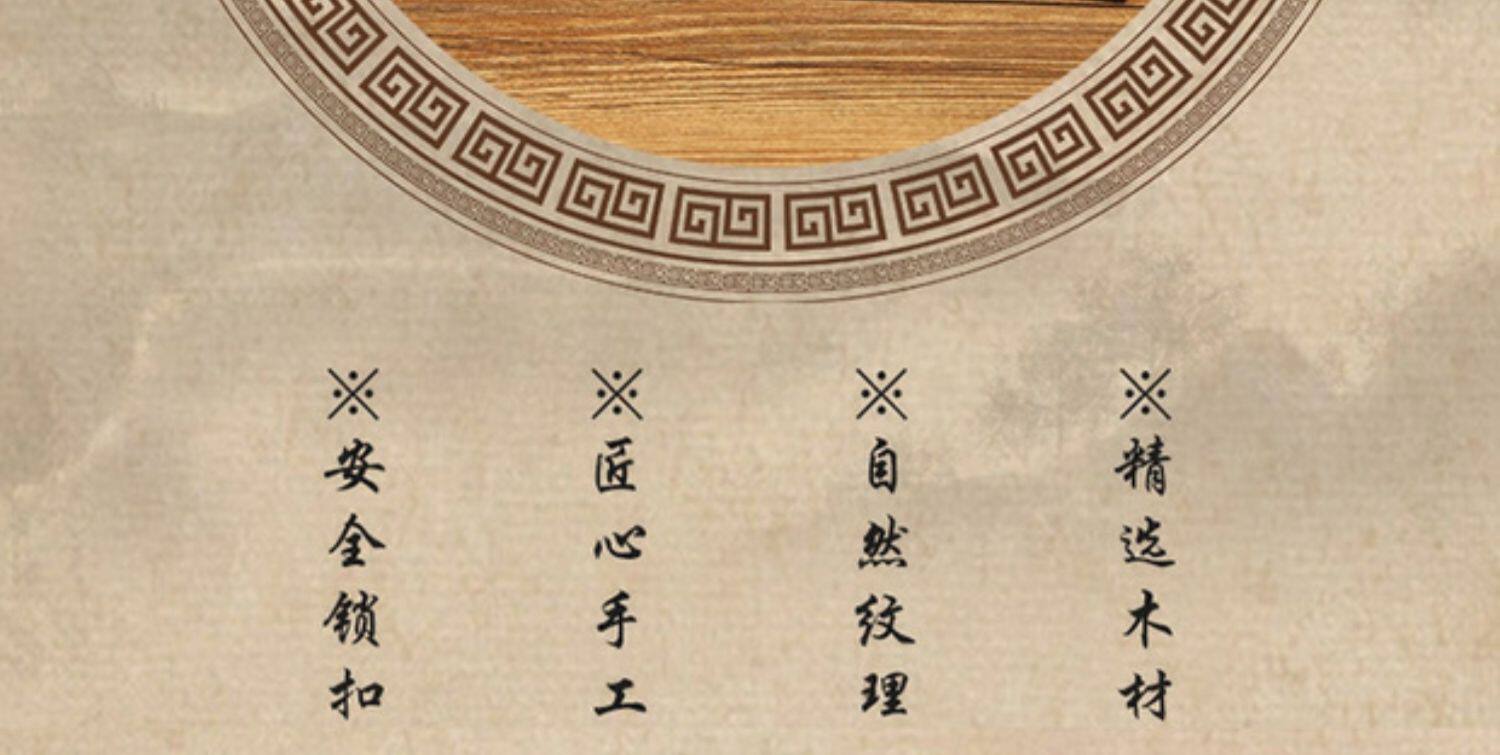 ※精选木材
※自然纹理
※匠心手工
※安全锁扣